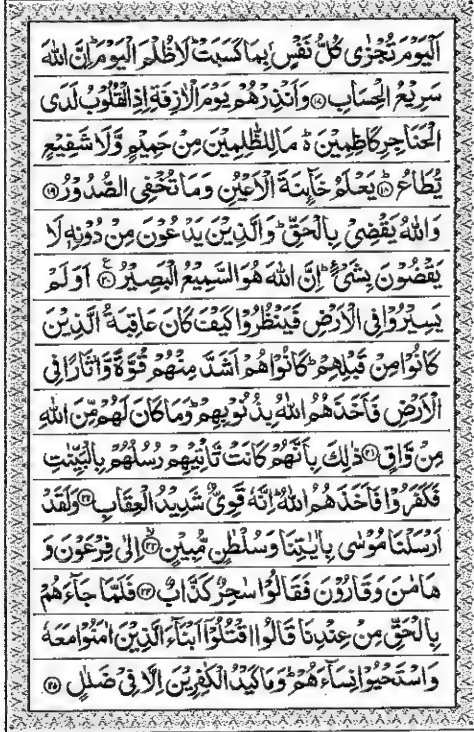 اَلْیَوْمَ تُجْزٰی كُلُّ نَفْسٍۭ بِمَا كَسَبَتْ ؕ لَا ظُلْمَ الْیَوْمَ ؕ اِنَّ اللّٰهَ
سَرِیْعُ الْحِسَابِ ۝۱۷ وَاَنْذِرْهُمْ یَوْمَ الْاٰزِفَةِ اِذِ الْقُلُوْبُ لَدَی
الْحَنَاجِرِ كَاظِمِیْنَ ؕ۬ مَا لِلظّٰلِمِیْنَ مِنْ حَمِیْمٍ وَّلَا شَفِیْعٍ
یُّطَاعُ ؕ۝۱۸ یَعْلَمُ خَآىِٕنَةَ الْاَعْیُنِ وَمَا تُخْفِی الصُّدُوْرُ ۝۱۹
وَاللّٰهُ یَقْضِیْ بِالْحَقِّ ؕ وَالَّذِیْنَ یَدْعُوْنَ مِنْ دُوْنِهٖ لَا
یَقْضُوْنَ بِشَیْءٍ ؕ اِنَّ اللّٰهَ هُوَ السَّمِیْعُ الْبَصِیْرُ ۝۲۰ع اَوَلَمْ
یَسِیْرُوْا فِی الْاَرْضِ فَیَنْظُرُوْا كَیْفَ كَانَ عَاقِبَةُ الَّذِیْنَ
كَانُوْا مِنْ قَبْلِهِمْ ؕ كَانُوْا هُمْ اَشَدَّ مِنْهُمْ قُوَّةً وَّاٰثَارًا فِی
الْاَرْضِ فَاَخَذَهُمُ اللّٰهُ بِذُنُوْبِهِمْ ؕ وَمَا كَانَ لَهُمْ مِّنَ اللّٰهِ
مِنْ وَّاقٍ ۝۲۱ ذٰلِكَ بِاَنَّهُمْ كَانَتْ تَّاْتِیْهِمْ رُسُلُهُمْ بِالْبَیِّنٰتِ
فَكَفَرُوْا فَاَخَذَهُمُ اللّٰهُ ؕ اِنَّهٗ قَوِیٌّ شَدِیْدُ الْعِقَابِ ۝۲۲ وَلَقَدْ
اَرْسَلْنَا مُوْسٰی بِاٰیٰتِنَا وَسُلْطٰنٍ مُّبِیْنٍ ۙ۝۲۳ اِلٰی فِرْعَوْنَ وَ
هَامٰنَ وَقَارُوْنَ فَقَالُوْا سٰحِرٌ كَذَّابٌ ۝۲۴ فَلَمَّا جَآءَهُمْ
بِالْحَقِّ مِنْ عِنْدِنَا قَالُوا اقْتُلُوْۤا اَبْنَآءَ الَّذِیْنَ اٰمَنُوْا مَعَهٗ
وَاسْتَحْیُوْا نِسَآءَهُمْ ؕ وَمَا كَیْدُ الْكٰفِرِیْنَ اِلَّا فِیْ ضَلٰلٍ ۝۲۵